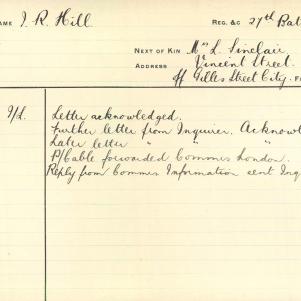 NAME I. R. Hill REG. &c 27th Bat
NEXT OF KIN Mrs L. Sinclair
ADDRESS Vincent Street.
off Gilles Street City.
Letter acknowledged.
Further letter from Inquirer. Acknowl
Later letter " " "
P/Cable forwarded Commrs London.
Reply from Commrs Information sent Inq